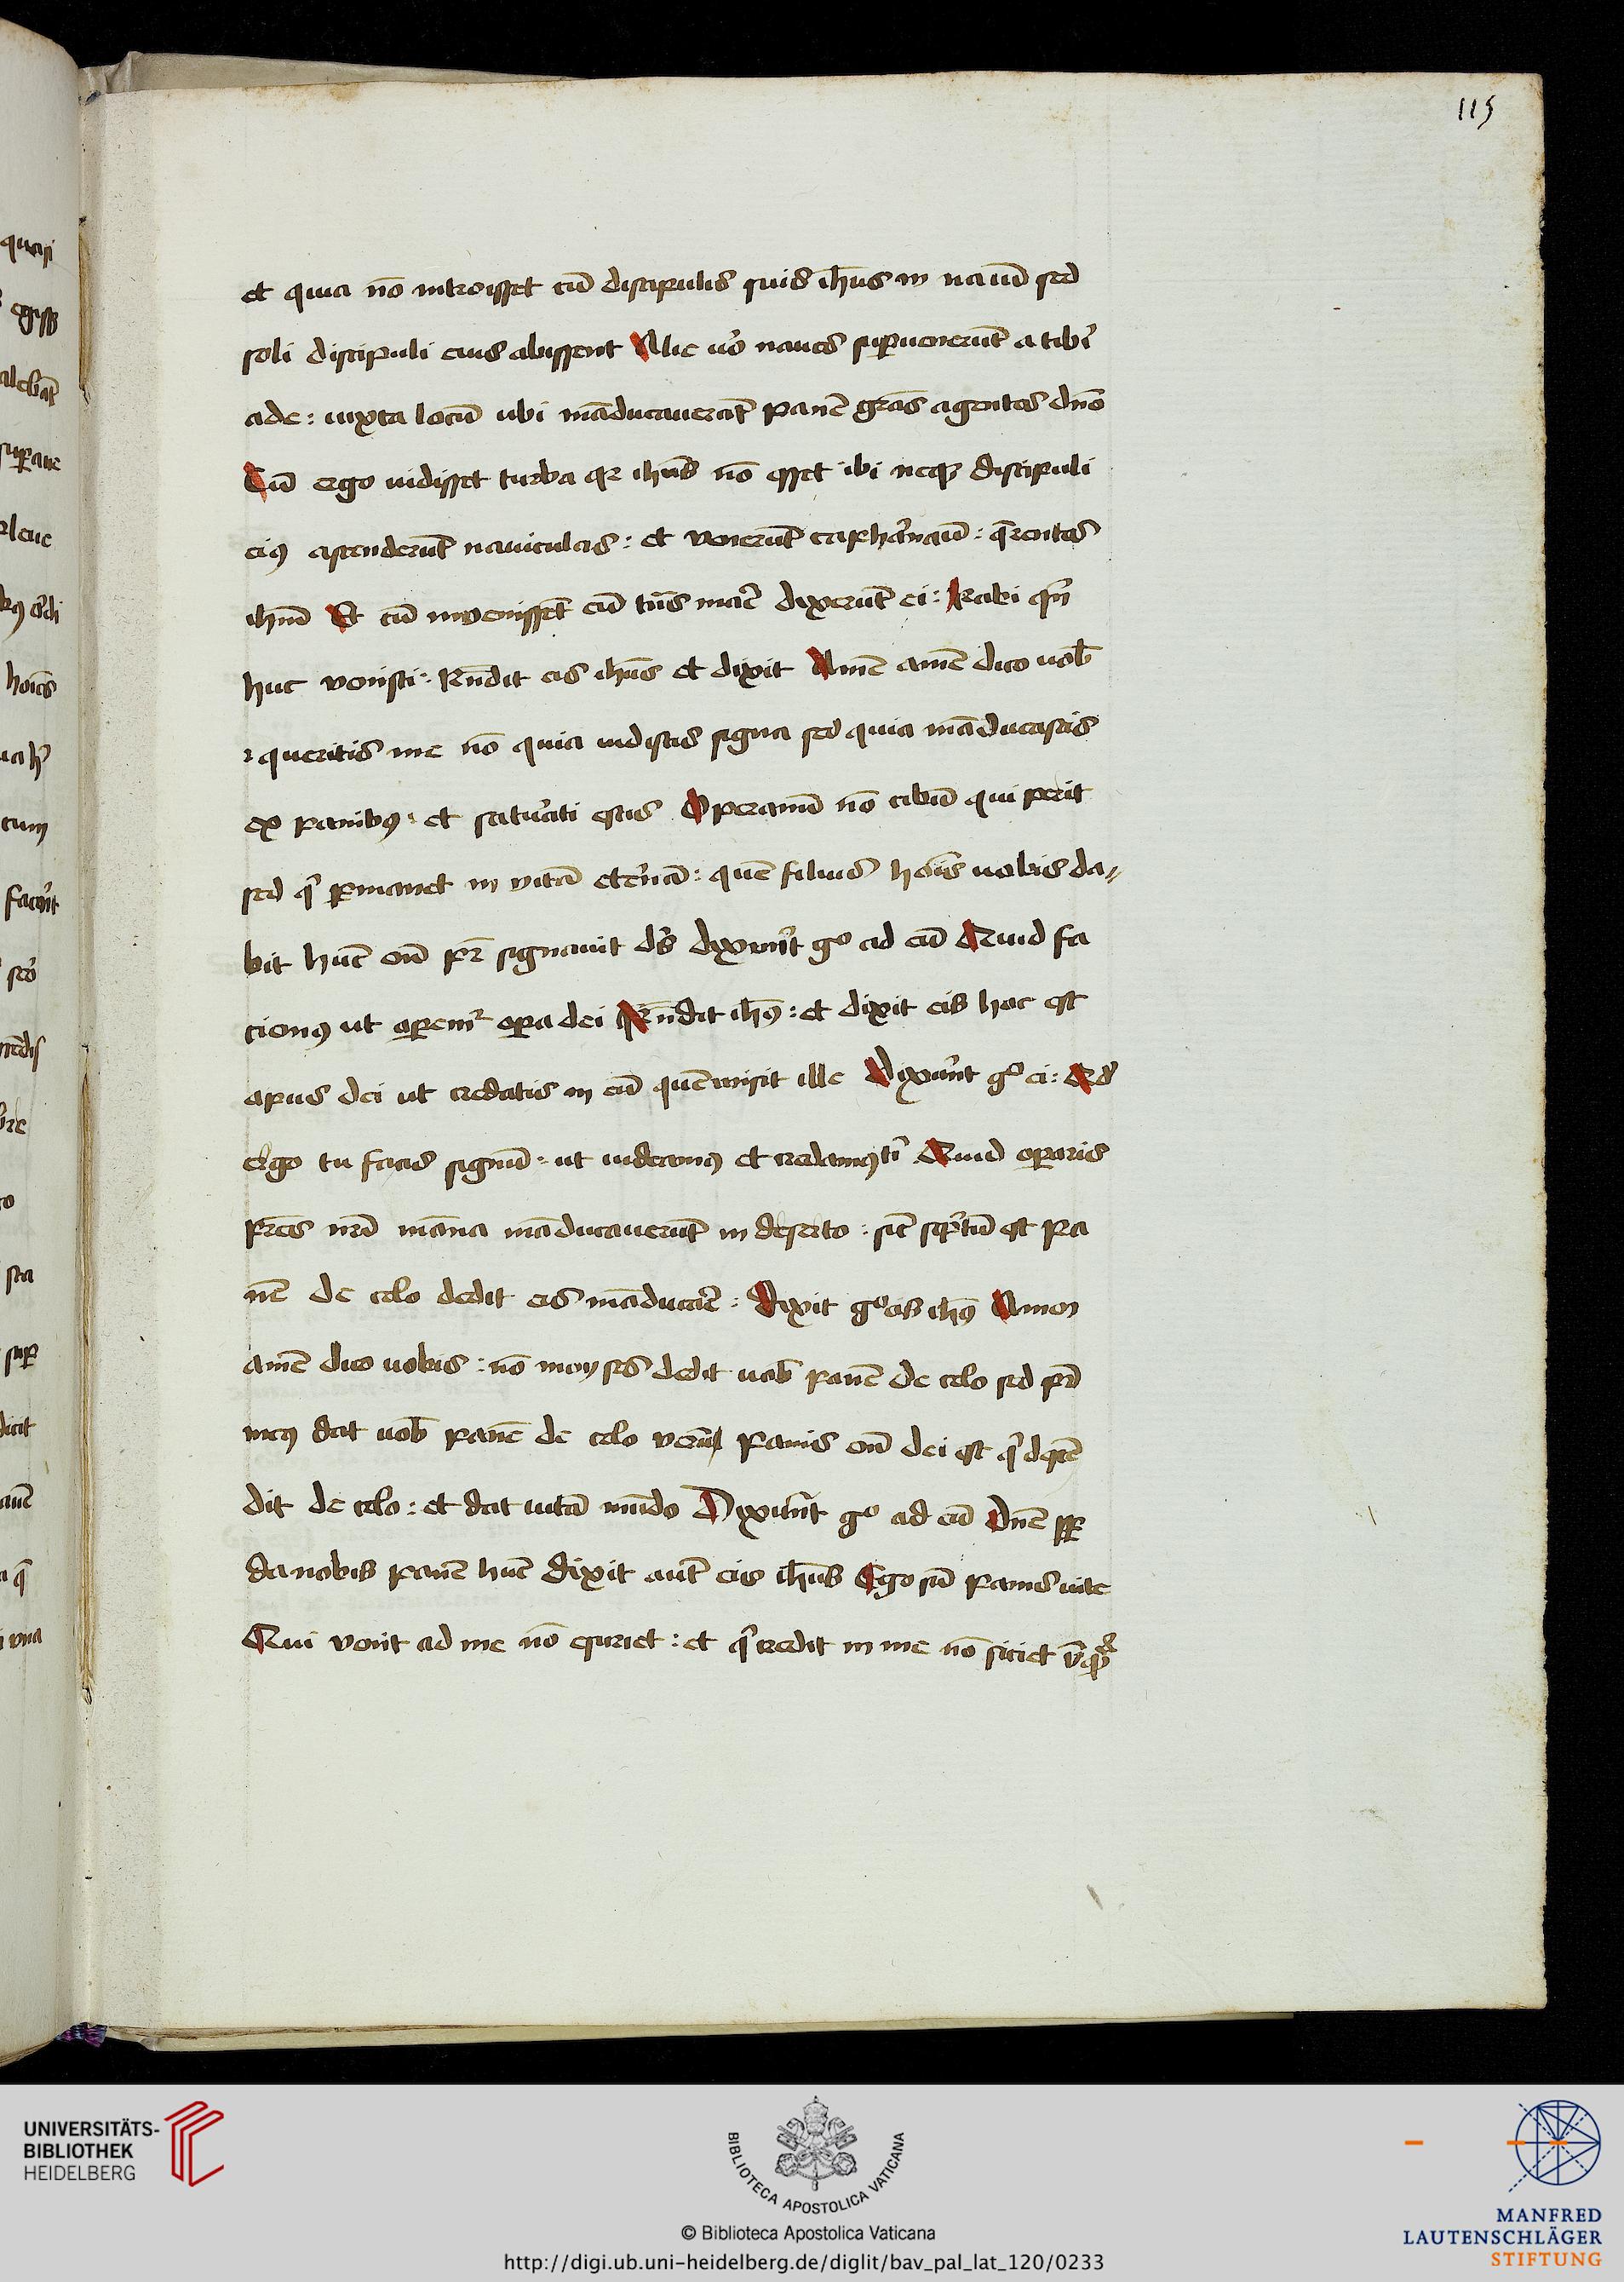 115
et quia nō introisset cū discipulis suis ih̄us in nauē sed
soli discipuli eius abissent Alie uō naues suꝑuenerūt a tibi
ade : iuxta locū ubi māducauerāt panē gr̄as agentes dn̄o
Cū ergo uidisset turba qr ih̄us nō esset ibi neqꝫ discipuli
eiꝰ ascenderūt nauiculas : et venerūt capharnaū : qrentes
ihm̄ Et cū inuenissēt eū tn̄s marē dixerūt ei : Rabi qn̄
huc venisti : Rn̄dit eis ih̄us et dixit Amē amē dico uob̄
queritis me nō quia uidistis signa sed quia māducastis
ex panibꝰ : et saturati estis Operamī nō cibū qui perit
sed q ꝑmanet in vitā eternā : quē filius hoīs uobis da〃
bit hūc em̄ pr̄ signauit ds̄ dixerūt gͦ ad eū Quid fa
ciemꝰ ut oꝑemr oꝑa dei Rn̄dit ih̄ꝰ : et dixit eis hoc est
opus dei ut credatis in eū quē misit ille Dixerūt gͦ ei : Qd
ergo tu facis signū : ut uideamꝰ et credamꝰ tī Quid oꝑaris
pr̄es nr̄i māna māducauerūt in deserto : sic̄ scptū est pa
nē de celo dedit eis māducarē : Dixit gͦ eis ih̄ꝰ Amen
amē dico uobis : nō moyses dedit uob̄ panē de celo sed pr̄
meꝰ dat uob̄ panē de celo verū Panis em̄ dei est q descē
dit de celo : et dat uitā mūdo Dixerūt gͦ ad eū Dn̄e sꝑ
da nobis panē hūc dixit aut̄ eis ih̄us Ego sū panis uite
Qui venit ad me nō esuriet : et q credit in me nō sitiet
UNIVERSITÄTS-
BIBLIOTHEK
HEIDELBERG
BIBLIOTECA APOSTOLICA VATICANA
© Biblioteca Apostolica Vaticana
http://digi.ub.uni-heidelberg.de/diglit/bav_pal_lat_120/0233
MANFRED
LAUTENSCHLÄGER
STIFTUNG